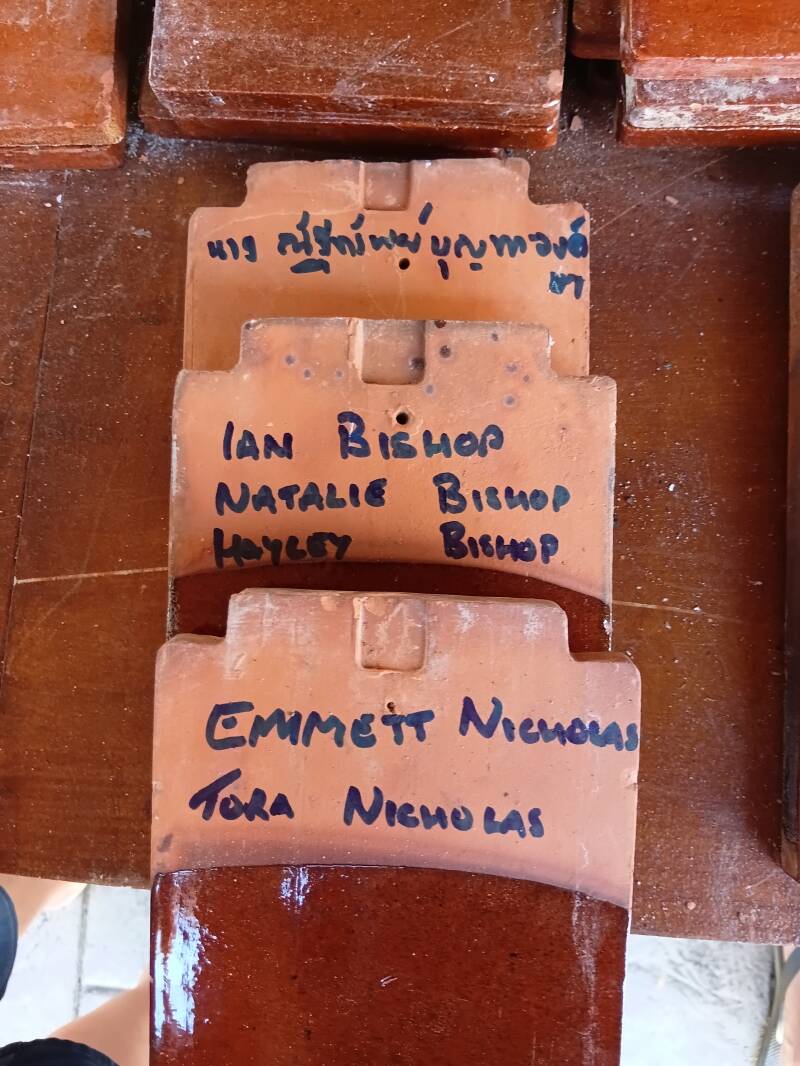 นาง
IAN BISHOP
NATALIE BISHOP
HAYLEY BISHOP
EMMETT NICHOLAS
TORA NICHOLAS